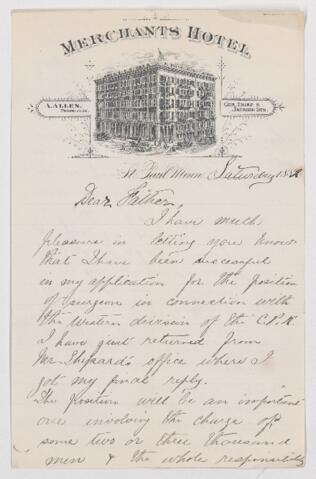 MERCHANTS HOTEL
A. ALLEN,
PROPRIETOR.
COR. THIRD &
JACKSON STS.
St. Paul, Minn. Saturday 188
Dear Father,
I have much
pleasure in letting you know
that I have been successful
in my application for the position
of Surgeon in connection with
the Western division of the C.P.R.
I have just returned from
Mr. Shepard's office where I
got my final reply.
The position will be an important
one involving the charge of
some two or three thousand
men & the whole responsibility